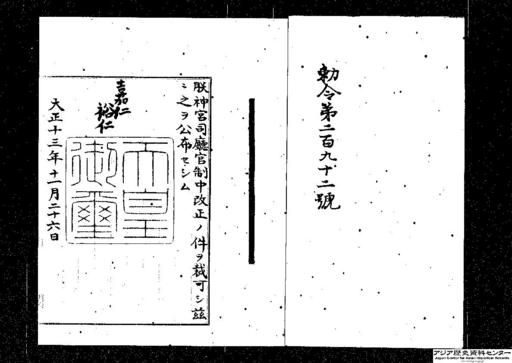 勅令第二百九十二號
朕神宮司廳官制中改正ノ件ヲ裁可シ茲
ニ之ヲ公布セシム
嘉仁
裕仁
天皇御璽
大正十三年十一月二十六日
アジア歴史資料センター
Japan Center for Asian Historical Records